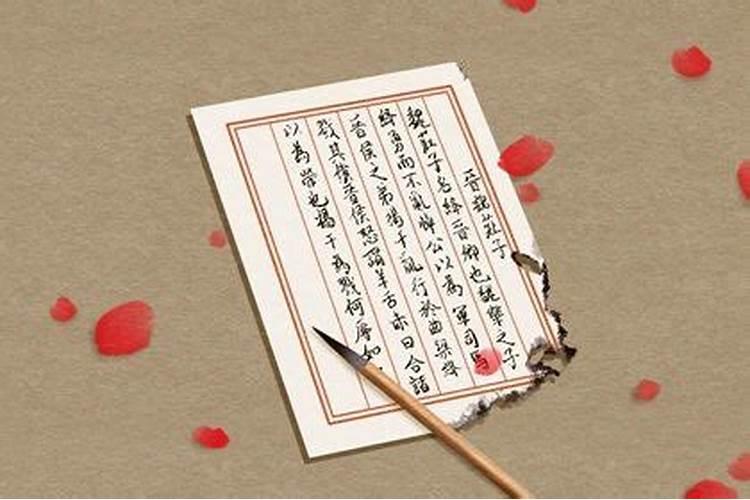 晋魏莊子
魏莊子名絳晋卿也魏犨之子
絳勇而不亂悼公以為軍司馬
晋侯之弟揚干亂行於曲梁絳
戮其僕晋侯怒謂羊舌赤曰合諸
以為榮也揚干為戮何辱如